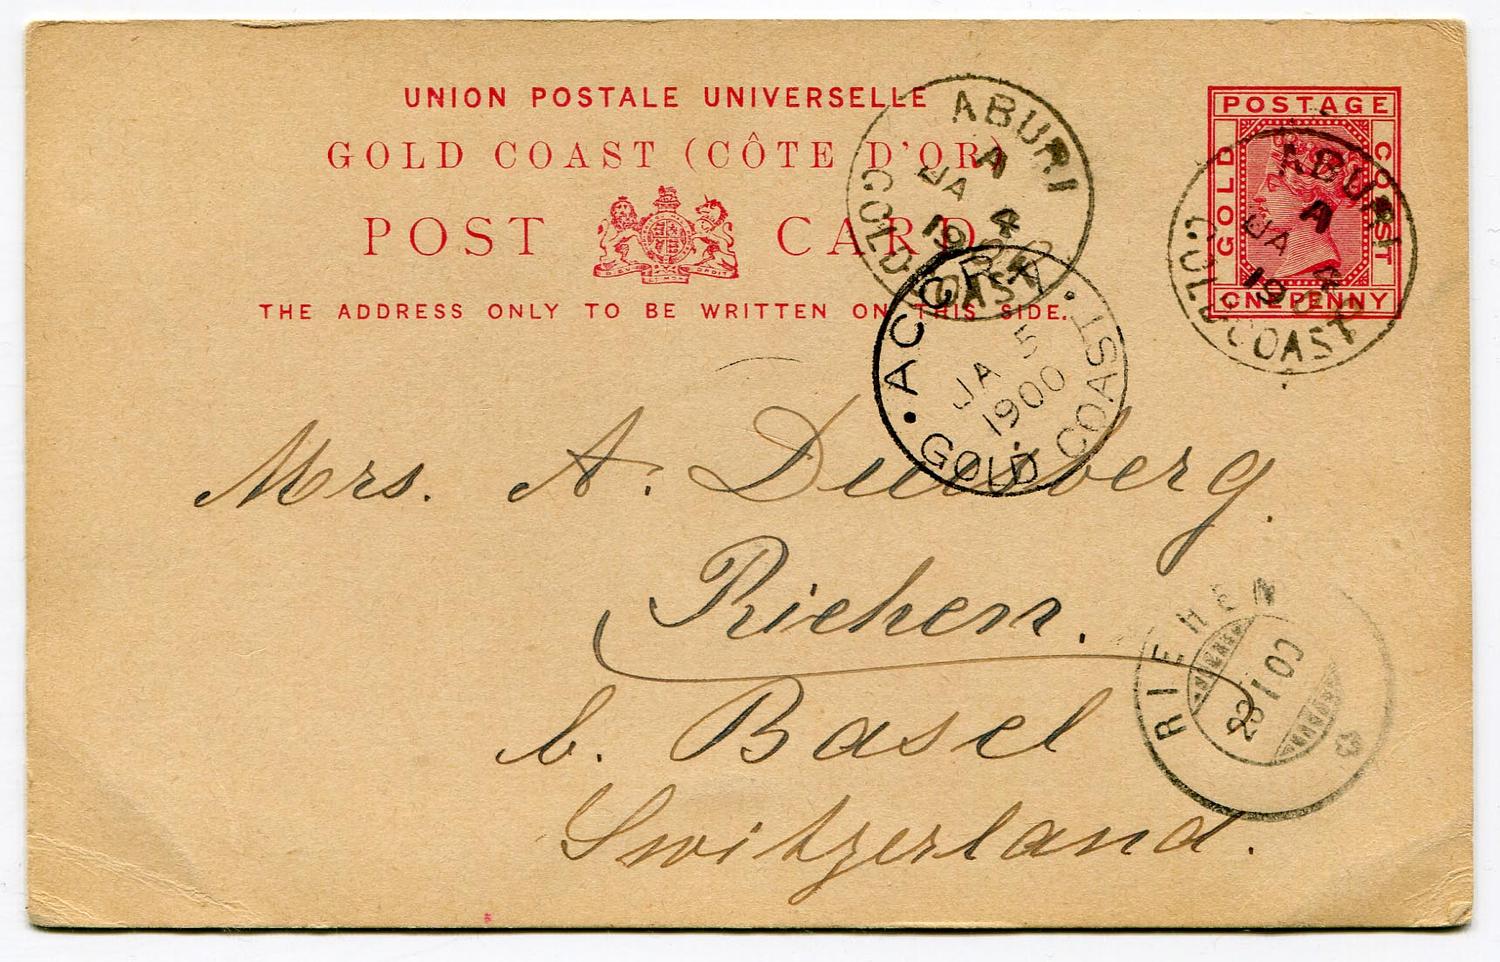 UNION POSTALE UNIVERSELLE
GOLD COAST (CÔTE D'OR)
POST CARD
THE ADDRESS ONLY TO BE WRITTEN ON THIS SIDE.
POSTAGE
GOLD
COAST
ONE PENNY
ABURI
A
JA 4
1900
GOLD COAST
ABURI
A
JA 4
1900
GOLD COAST
ACCRA
JA 5
1900
GOLD COAST
Mrs. A.
Riehen.
b. Basel
Switzerland.
RIEHEN
23 I 00